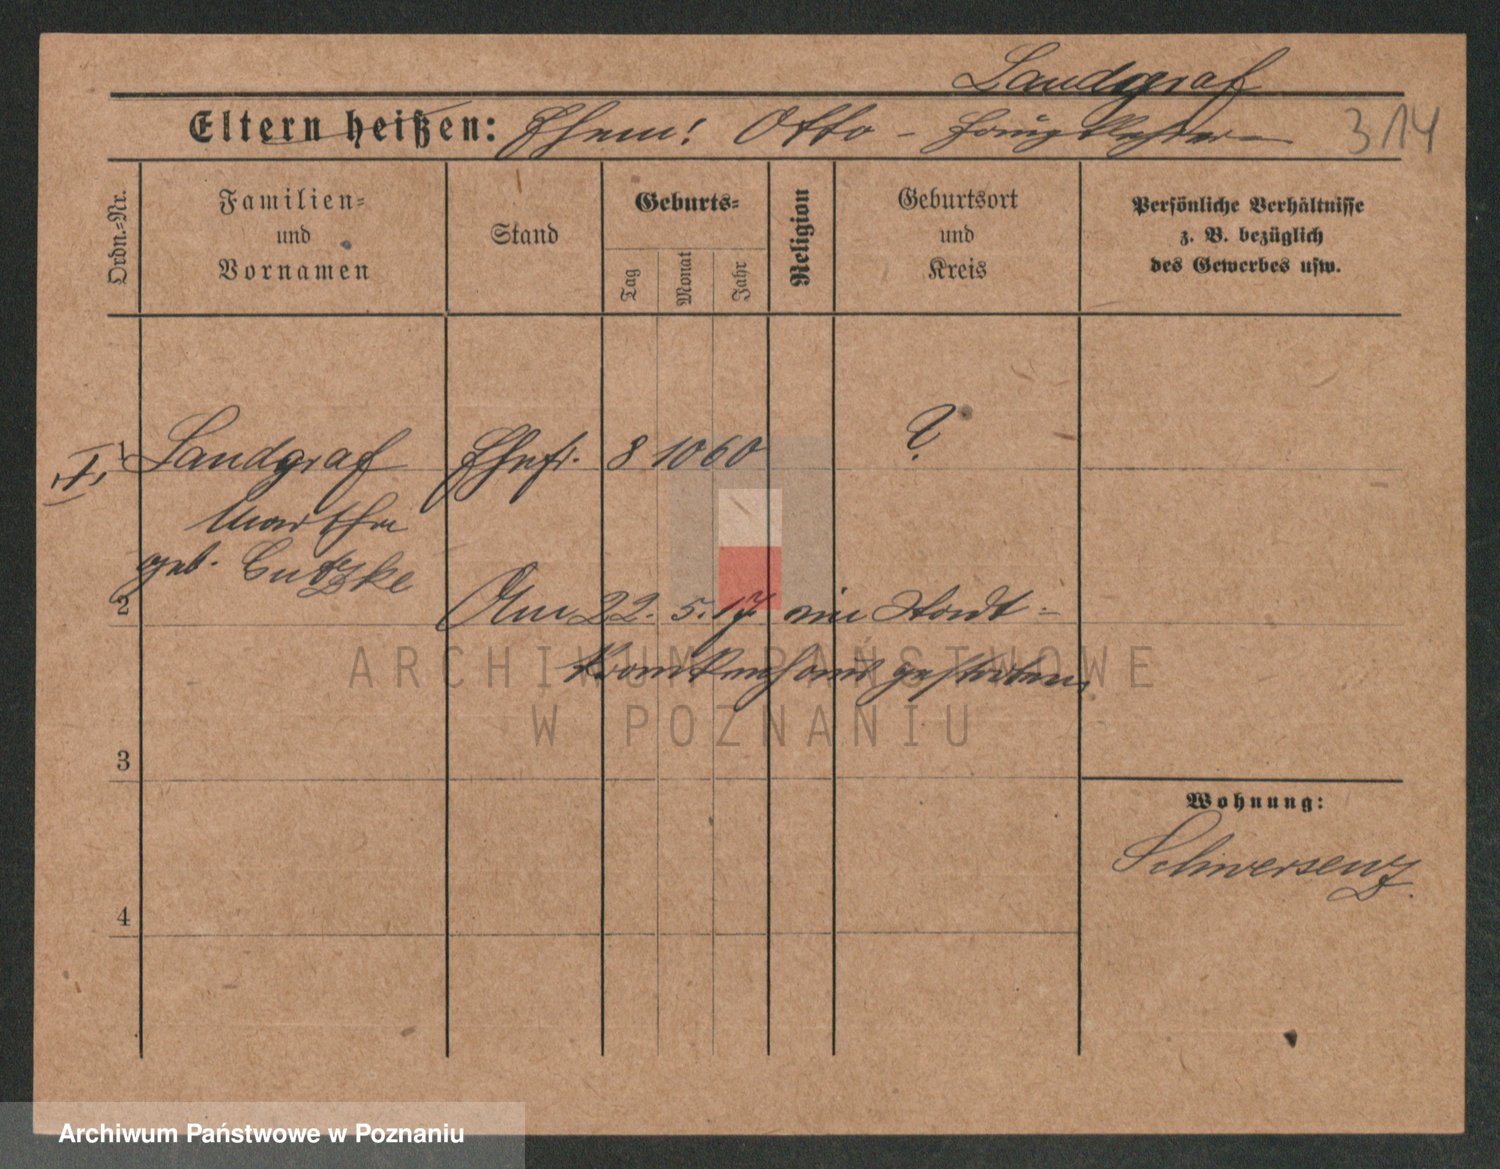 Landgraf
Eltern heißen: Ehem: Otto - 314
Ordn.=Nr.
Familien=
und
Vornamen
Stand
Geburts=
Tag
Monat
Jahr
Religion
Geburtsort
und
Kreis
Persönliche Verhältnisse
z. B. bezüglich
des Gewerbes usw.
1 Landgraf Ehefr. 8 10 60 ?
Martha
geb. Gutzke
2 Am 22. 5. 17 im Stadt=
Krankenhaus gestorben
ARCHIWUM PAŃSTWOWE
W POZNANIU
3
Wohnung:
Schwersenz.
4
Archiwum Państwowe w Poznaniu